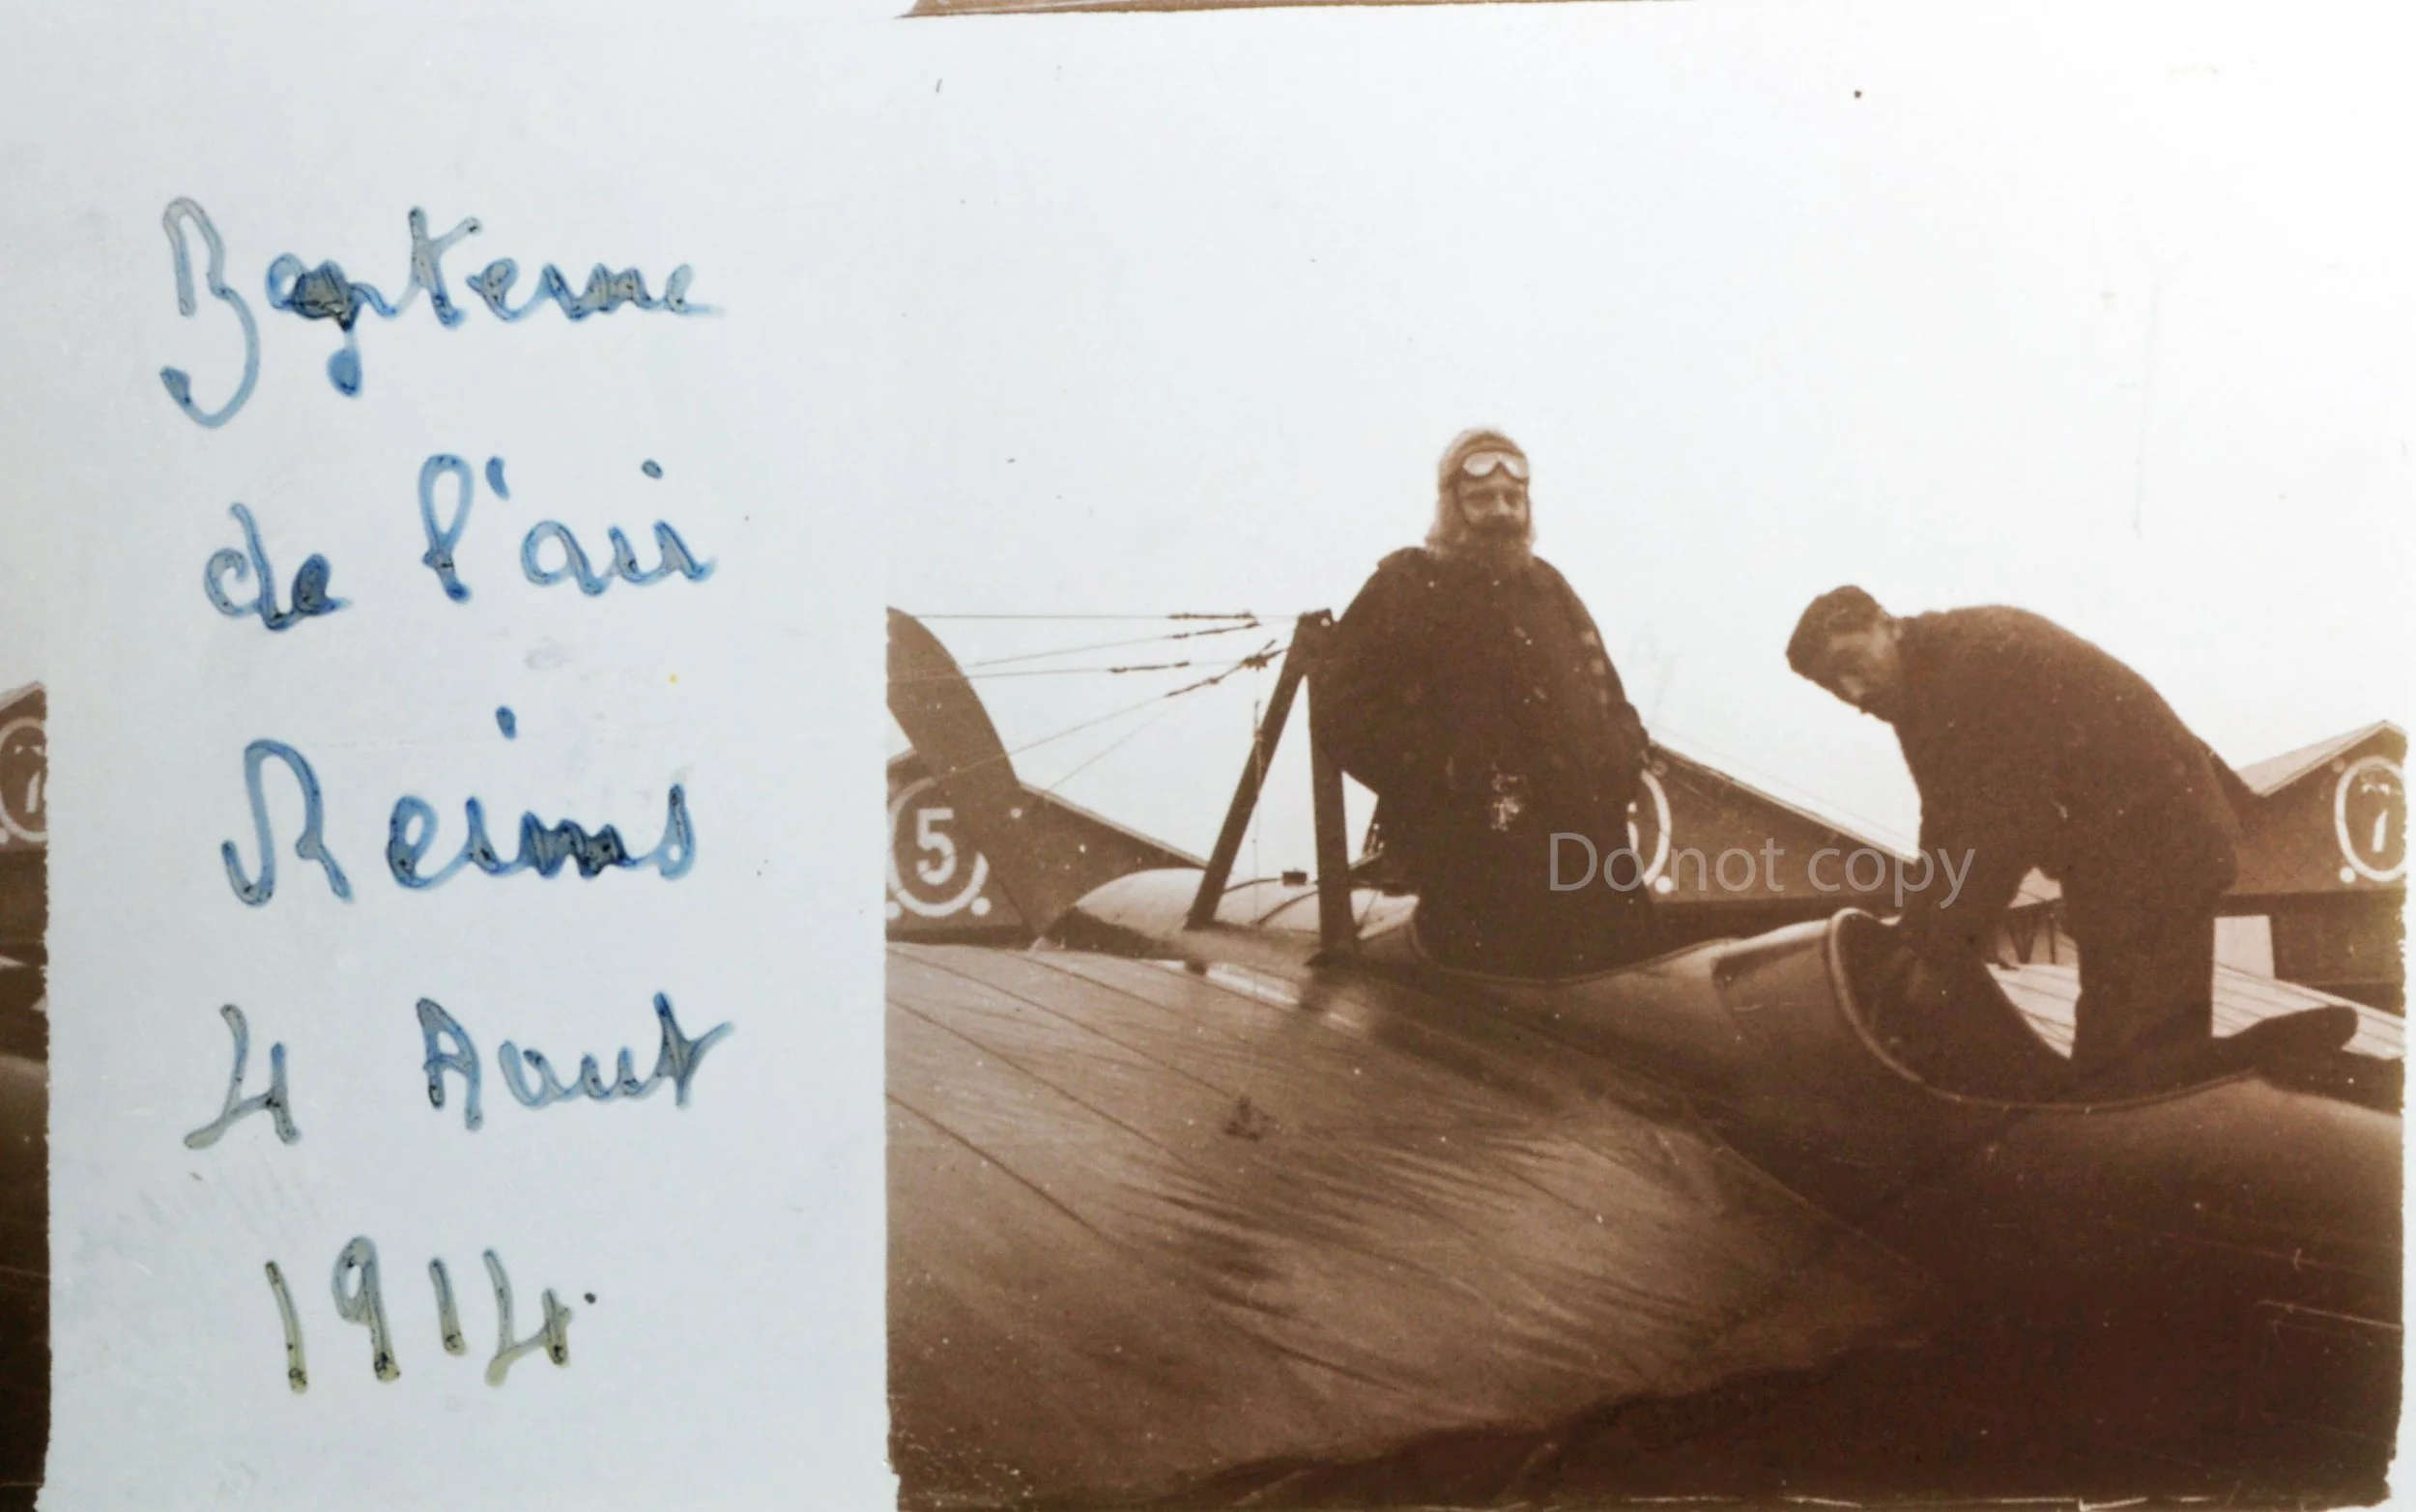 Bapteme
de l'air
Reims
4 Aout
1914
5
7
7
Do not copy